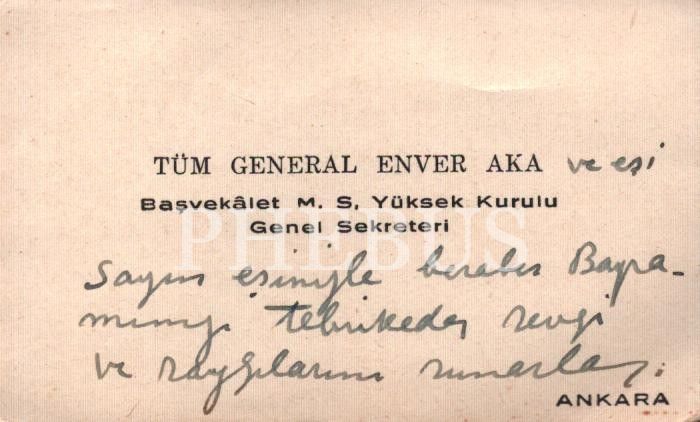 TÜM GENERAL ENVER AKA ve eşi
Başvekâlet M. S. Yüksek Kurulu
Genel Sekreteri
PHEBUS
Sayın eşinizle beraber Bayra-
mınızı tebrikeder sevgi
ve saygılarını sunarlar.
ANKARA